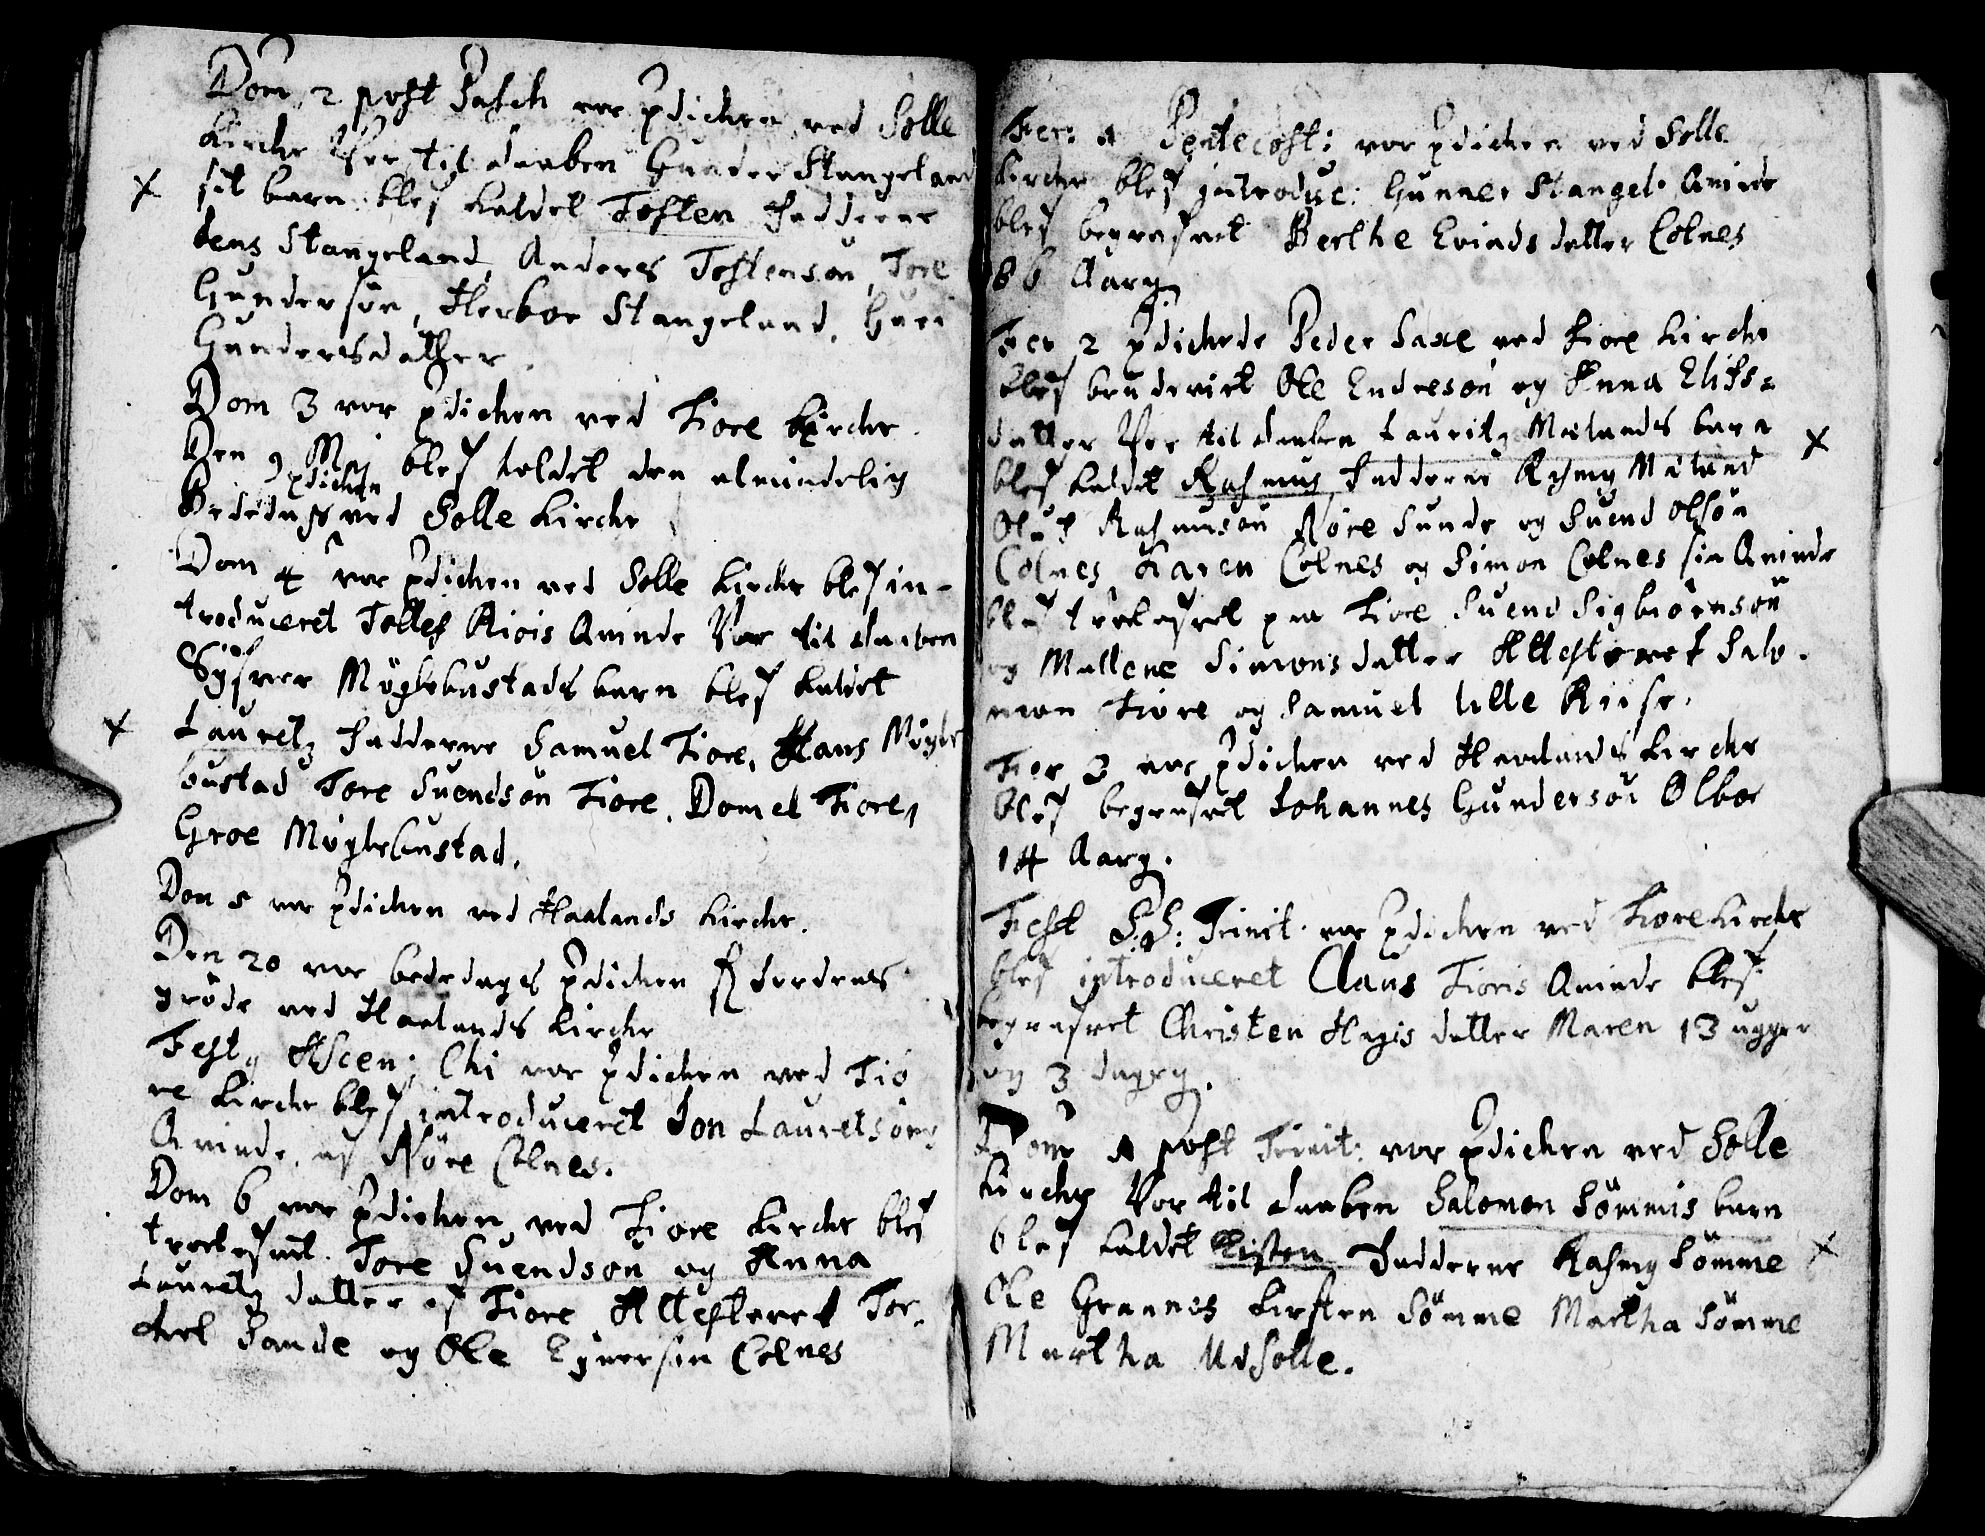 Dom 2 post Pasch var pdichen ved Solle
Kirche Var til daaben Gunder Stangeland
x sit barn blef kaldet Tosten Fadderne
Jens Stangeland, Anders Tostensøn, Tore
Gundersøn, Herboe Stangeland, Guri
Gundersdather.
Dom 3 var pdichen ved Tiore Kirche.
Den 9 Maj blef holdet den almindelig
pdichen
Bededags ved Solle Kirche
Dom 4 var pdichen ved Solle Kirche blef in-
troduceret Tollef Riois Qvinde Var til daaben
Sifver Møglebustads barn blef kaldet
x Lauretz Fadderne Samuel Tiore, Hans Møgle
bustad Tore Suendsøn Tiore, Domet Tiore,
Groe Møglebustad.
Dom 5 var pdichen ved Haalands Kirche.
Den 20 var bededags pdichen for Jordens
grøde ved Haalands Kirche
Festo Ascen: Chi var pdichen ved Tio
re Kirche blef introduceret Jon Lauretsøns
Qvinde af Nøre Colnes.
Dom 6 var pdichen ved Tiore Kirche blef
trolofvet Tore Suendsøn og Anna
Lauretz datter af Tiore Attesteret Tor-
chel Sande og Ole Egversøn Colnes
Fer: 1 Pentecost: var pdichen ved Solle
Kirche blef introduc: Gunner Stangel. Qvinde
blef begrafvet Berthe Erinds datter Colnes
86 Aarg.
Fer 2 pdichede Peder Saxe ved Tiore Kirche
blef brudeviet Ole Endresøn og Anna Elifs=
datter Var til daaben Lauritz Mælands barn x
blef kaldet Rasmus, Fadderne Rasmus Mæland
Oluf Rasmusøn Nøre Sunde og Suend Olsøn
Colnes, Karen Colnes og Simon Colnes sin Qvinde
blef trolofvet paa Tiore Suend Sigbiørnsøn
og Mallene Simons datter Attesteret Salo-
mon Tiore og Samuel lille Riise.
Fer 3 var pdichen ved Haalands Kirche
blef begrafvet Johannes Gundersøn Ølboe
14 Aarg.
Fest S.S: Trinit. var pdichen ved Tiore Kirche
blef introduceret Claus Tioris Qvinde blef
begrafvet Christen Hagis datter Maren 13 uger
og 3 dage.
Dom 1 post Trinit: var pdichen ved Solle
Kirche Var til daaben Salomon Sømmis barn
blef kaldet Kisten Fadderne Rasmus Sømme x
Ole Grannes Kirsten Sømme Martha Sømme
Martha Udsolle.